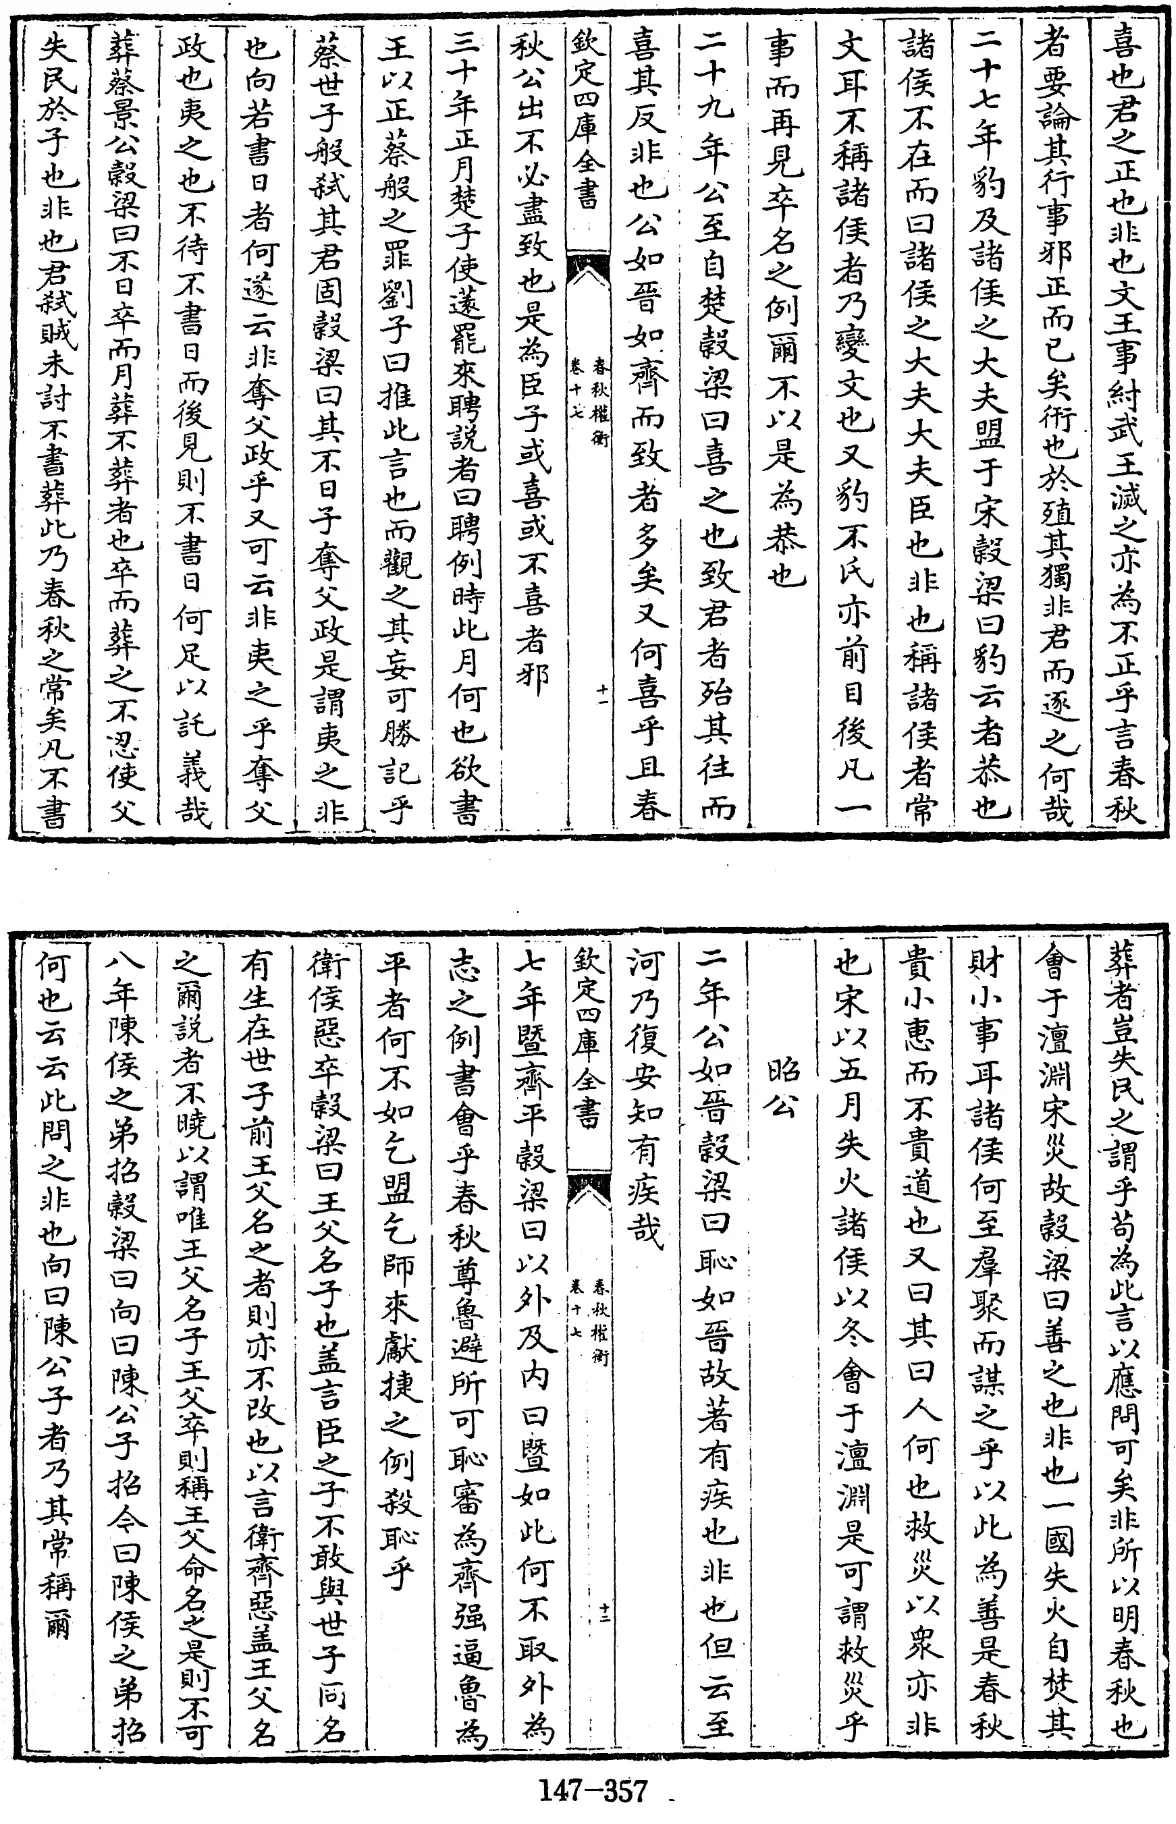 喜也君之正也非也文王事紂武王滅之亦為不正乎言春秋
者要論其行事邪正而已矣衎也於殖其獨非君而逐之何哉
二十七年豹及諸侯之大夫盟于宋穀梁曰豹云者恭也
諸侯不在而曰諸侯之大夫大夫臣也非也稱諸侯者常
文耳不稱諸侯者乃變文也又豹不氏亦前目後凡一
事而再見卒名之例爾不以是為恭也
二十九年公至自楚穀梁曰喜之也致君者殆其往而
喜其反非也公如晉如齊而致者多矣又何喜乎且春
欽定四庫全書
春秋權衡
卷十七
十一
秋公出不必盡致也是為臣子或喜或不喜者邪
三十年正月楚子使薳罷來聘説者曰聘例時此月何也欲書
王以正蔡般之罪劉子曰推此言也而觀之其妄可勝記乎
蔡世子般弒其君固穀梁曰其不日子奪父政是謂夷之非
也向若書日者何遂云非奪父政乎又可云非夷之乎奪父
政也夷之也不待不書日而後見則不書日何足以託義哉
葬蔡景公穀梁曰不日卒而月葬不葬者也卒而葬之不忍使父
失民於子也非也君弒賊未討不書葬此乃春秋之常矣凡不書
葬者豈失民之謂乎苟為此言以應問可矣非所以明春秋也
會于澶淵宋災故穀梁曰善之也非也一國失火自焚其
財小事耳諸侯何至羣聚而謀之乎以此為善是春秋
貴小惠而不貴道也又曰其曰人何也救災以衆亦非
也宋以五月失火諸侯以冬會于澶淵是可謂救災乎
昭公
二年公如晉穀梁曰恥如晉故著有疾也非也但云至
河乃復安知有疾哉
欽定四庫全書
春秋權衡
卷十七
十二
七年暨齊平穀梁曰以外及内曰暨如此何不取外為
志之例書會乎春秋尊魯避所可恥審為齊强逼魯為
平者何不如乞盟乞師來獻捷之例殺恥乎
衛侯惡卒穀梁曰王父名子也盖言臣之子不敢與世子同名
有生在世子前王父名之者則亦不改也以言衛齊惡盖王父名
之爾説者不曉以謂唯王父名子王父卒則稱王父命名之是則不可
八年陳侯之弟招穀梁曰向曰陳公子招今曰陳侯之弟招
何也云云此問之非也向曰陳公子者乃其常稱爾
147-357